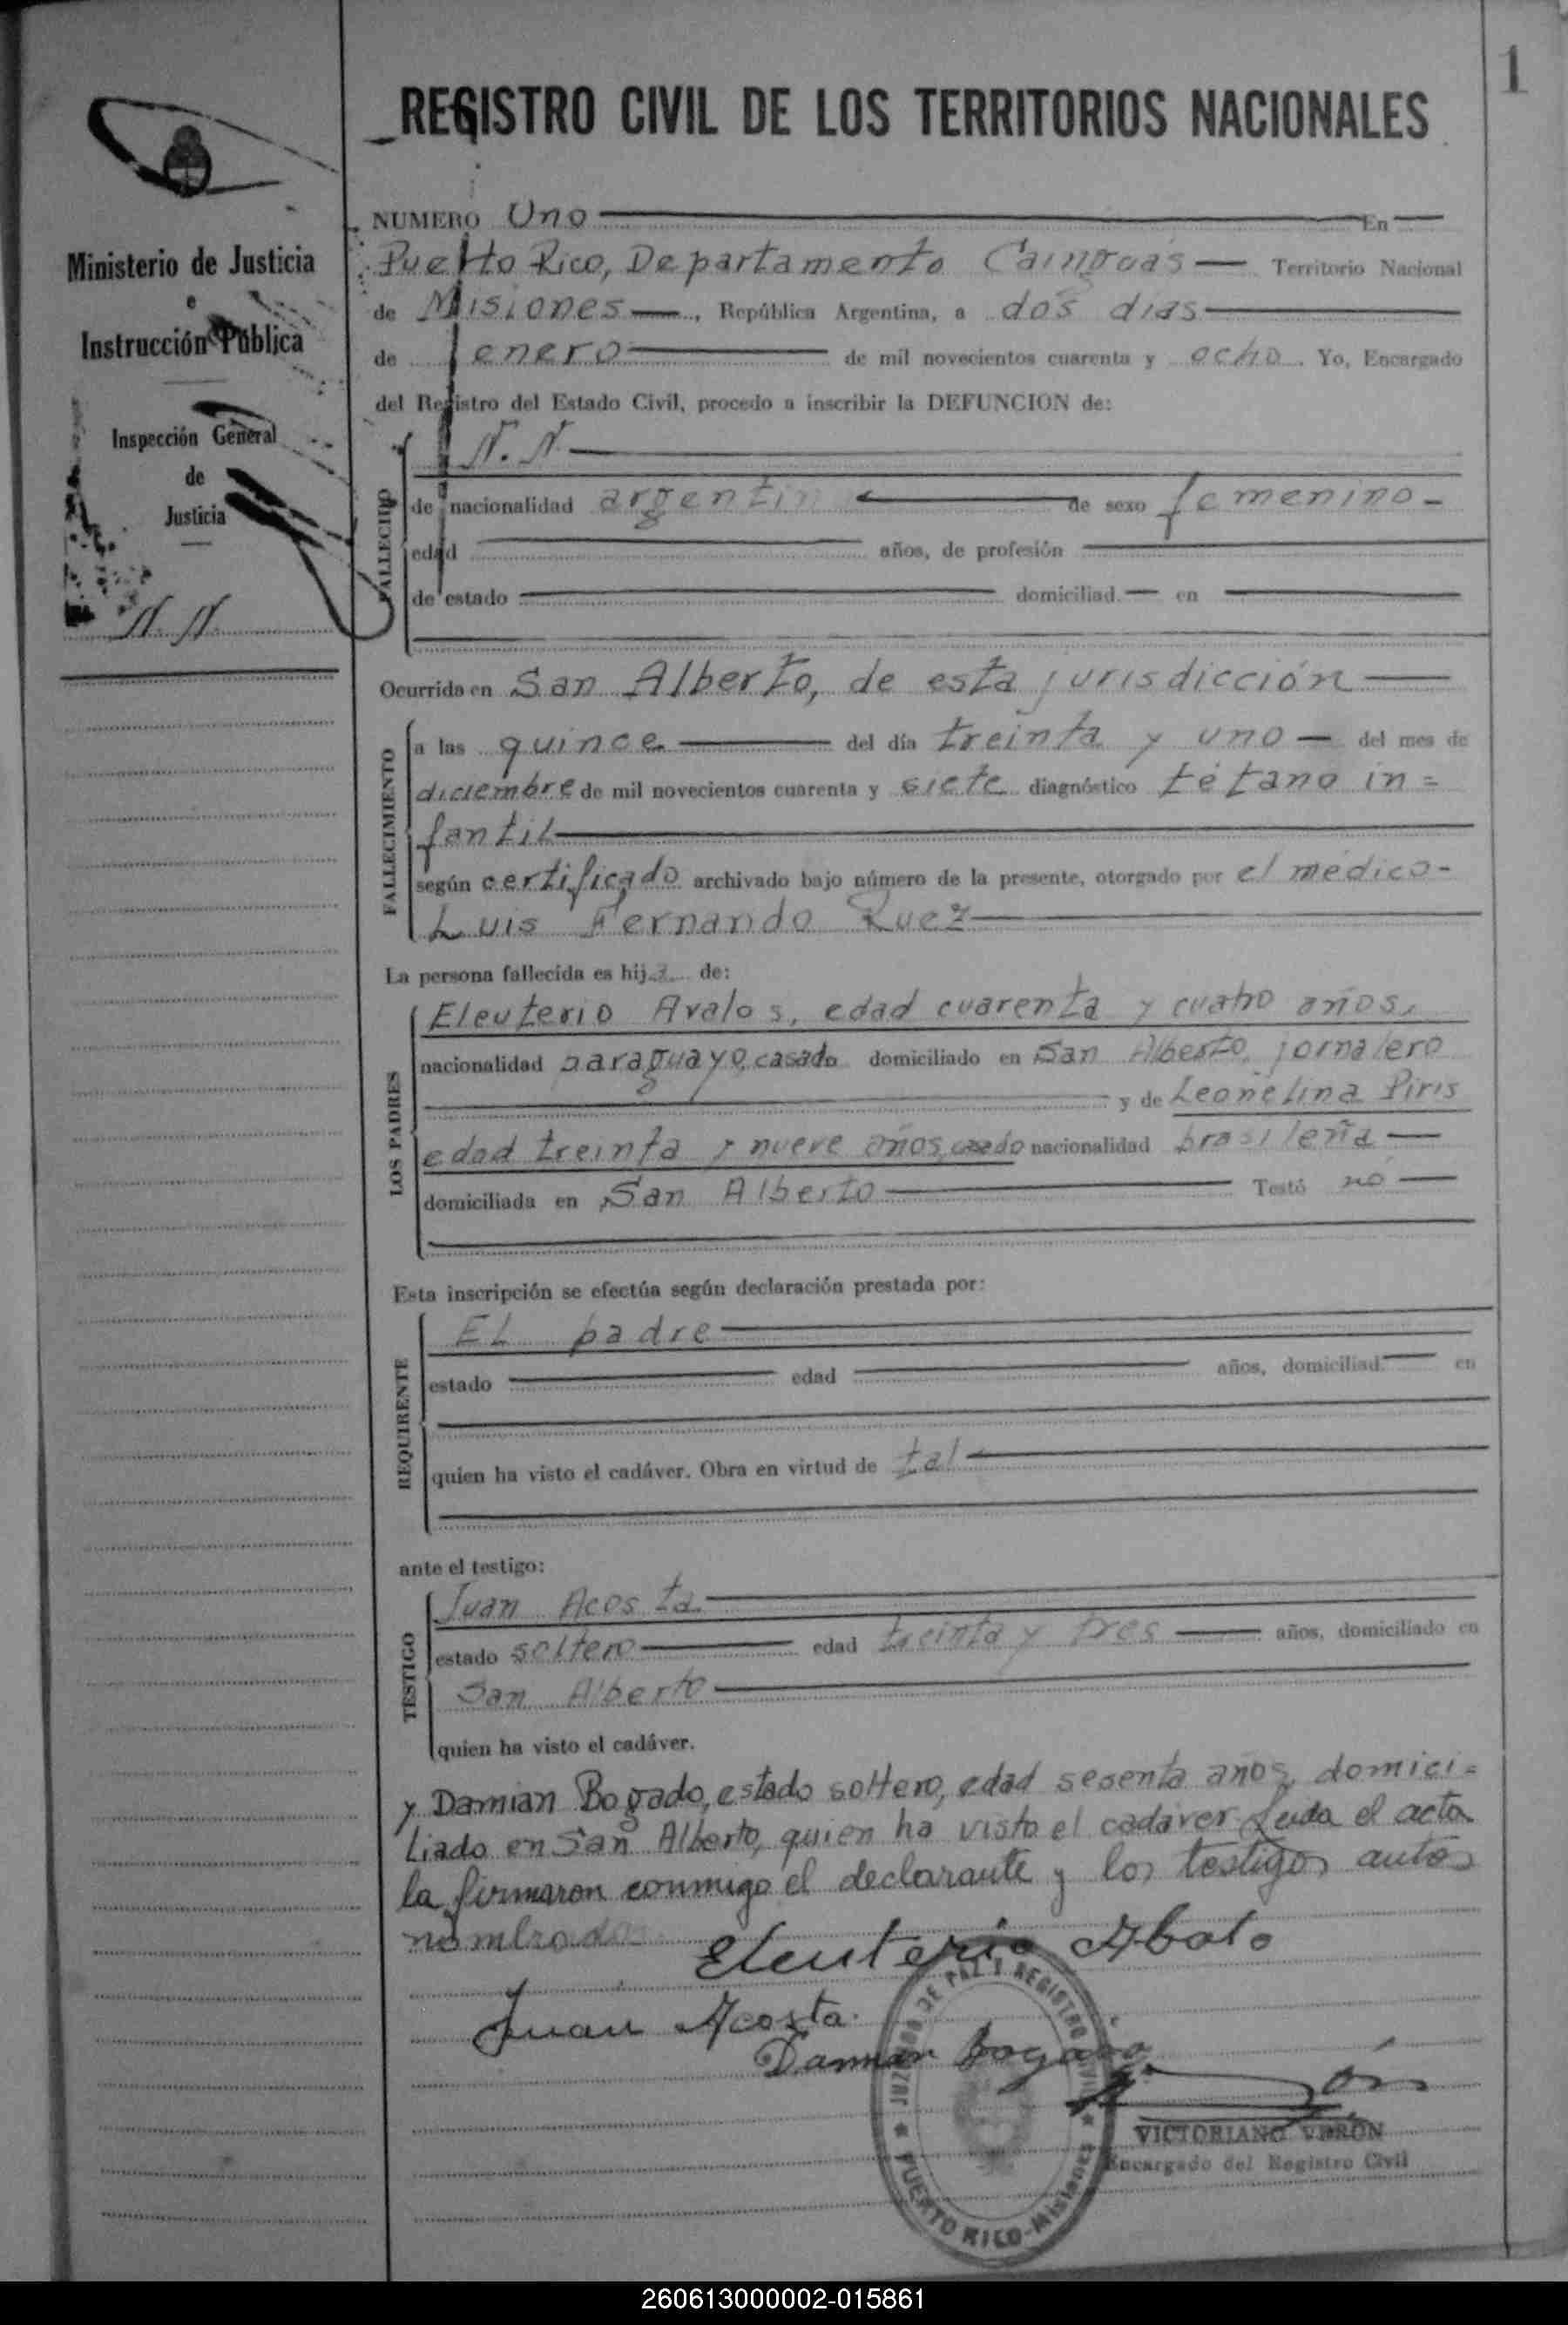 1
REGISTRO CIVIL DE LOS TERRITORIOS NACIONALES
Ministerio de Justicia
e
Instrucción Pública
Inspección General
de
Justicia
N. N.
NUMERO Uno En
Puerto Rico, Departamento Cainguás Territorio Nacional
de Misiones, República Argentina, a dos dias
de enero de mil novecientos cuarenta y ocho. Yo, Encargado
del Registro del Estado Civil, procedo a inscribir la DEFUNCION de:
FALLECIDO
N. N
de nacionalidad argentin de sexo femenino
edad años, de profesión
de estado domiciliad en
Ocurrida en San Alberto, de esta jurisdicción
FALLECIMIENTO
a las quince del día treinta y uno del mes de
diciembre de mil novecientos cuarenta y siete diagnóstico tétano in=
fantil
según certificado archivado bajo número de la presente, otorgado por el médico-
Luis Fernando Ruez
La persona fallecida es hija de:
LOS PADRES
Eleuterio Avalos, edad cuarenta y cuatro años,
nacionalidad paraguayo, casado domiciliado en San Alberto, jornalero
y de Leonelina Piris
edad treinta y nueve años, casado nacionalidad brasileña
domiciliada en San Alberto Testó nó
Esta inscripción se efectúa según declaración prestada por:
REQUIRENTE
EL padre
estado edad años, domiciliad en
quien ha visto el cadáver. Obra en virtud de tal
ante el testigo:
TESTIGO
Juan Acosta
estado soltero edad treinta y tres años, domiciliado en
San Alberto
quien ha visto el cadáver.
y Damian Bogado, estado soltero, edad sesenta años, domici=
liado en San Alberto, quien ha visto el cadáver. Leida el acta
la firmaron conmigo el declarante y los testigos antes
nombrados
Eleuterio Abalo
Juan Acosta
Damian Bogado
JUZGADO DE PAZ Y REGISTRO CIVIL
PUERTO RICO - Misiones
VICTORIANO VERÓN
Encargado del Registro Civil
260613000002-015861